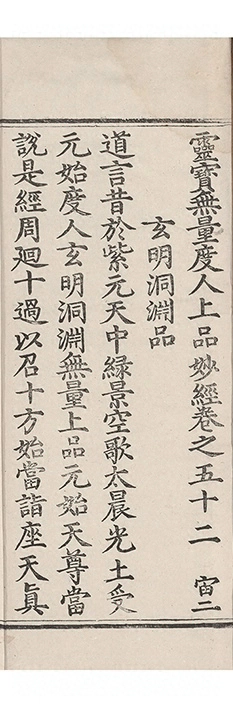 靈寶無量度人上品妙經卷之五十二 宙二
玄明洞淵品
道言昔於紫元天中緑景空歌太晨光土受
元始度人玄明洞淵無量上品元始天尊當
說是經周廻十過以召十方始當詣座天眞